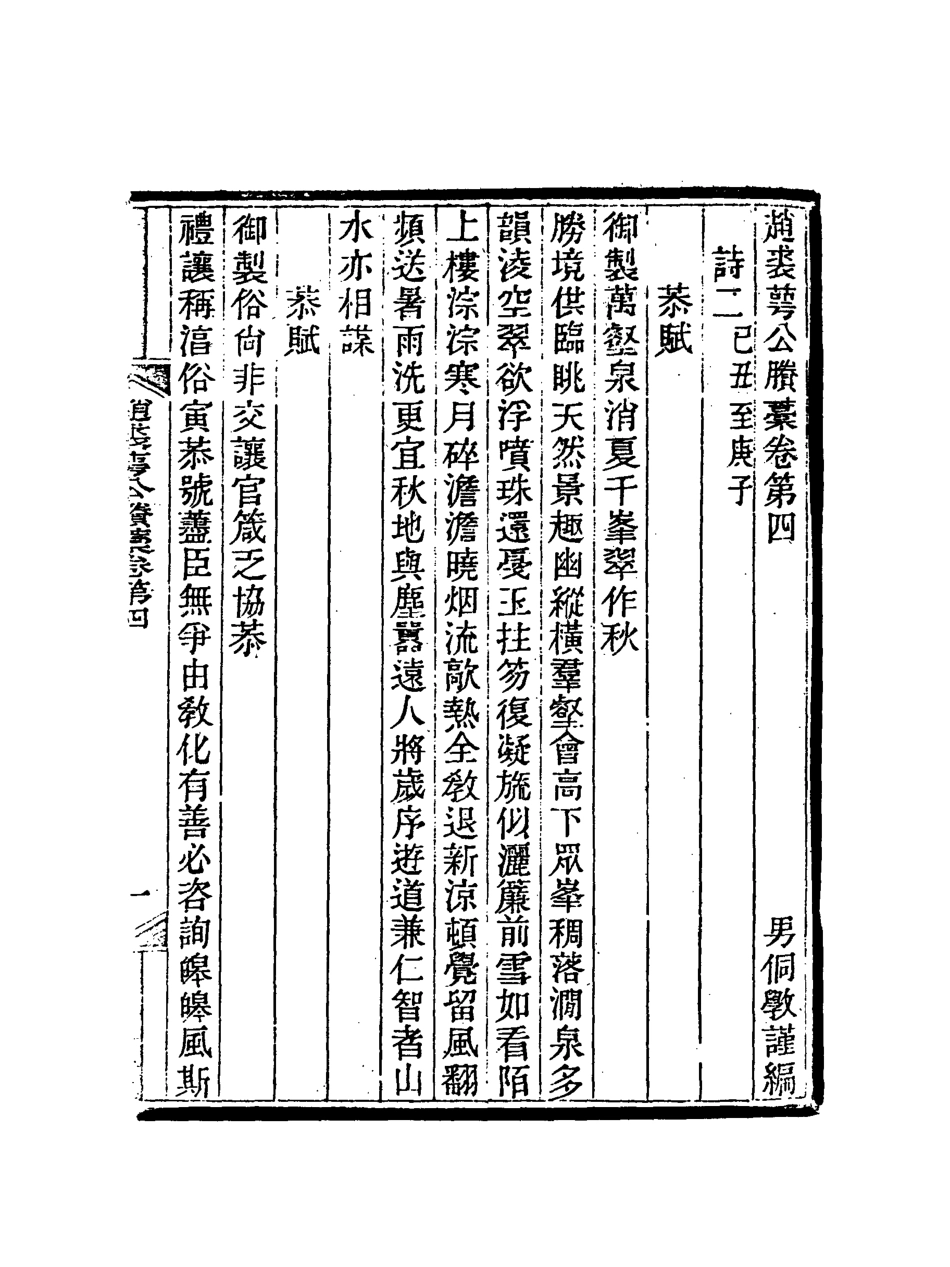 趙裘萼公賸藁卷第四 男侗斆謹編
詩二 已丑至庚子
恭賦
御製萬壑泉消夏千峯翠作秋
勝境供臨眺天然景趣幽縱橫羣壑會高下眾峯稠落澗泉多
韻淩空翠欲浮噴珠還戞玉拄笏復凝旒似灑簾前雪如看陌
上樓淙淙寒月碎澹澹曉烟流敲熱全教退新涼頓覺留風翻
頻送暑雨洗更宜秋地與塵囂遠人將歲序遊道兼仁智者山
水亦相謀
恭賦
御製俗尙非交讓官箴乏協恭
禮讓稱湻俗寅恭號藎臣無爭由敎化有善必咨詢皞皞風斯
趙裘萼公賸藁卷第四
一